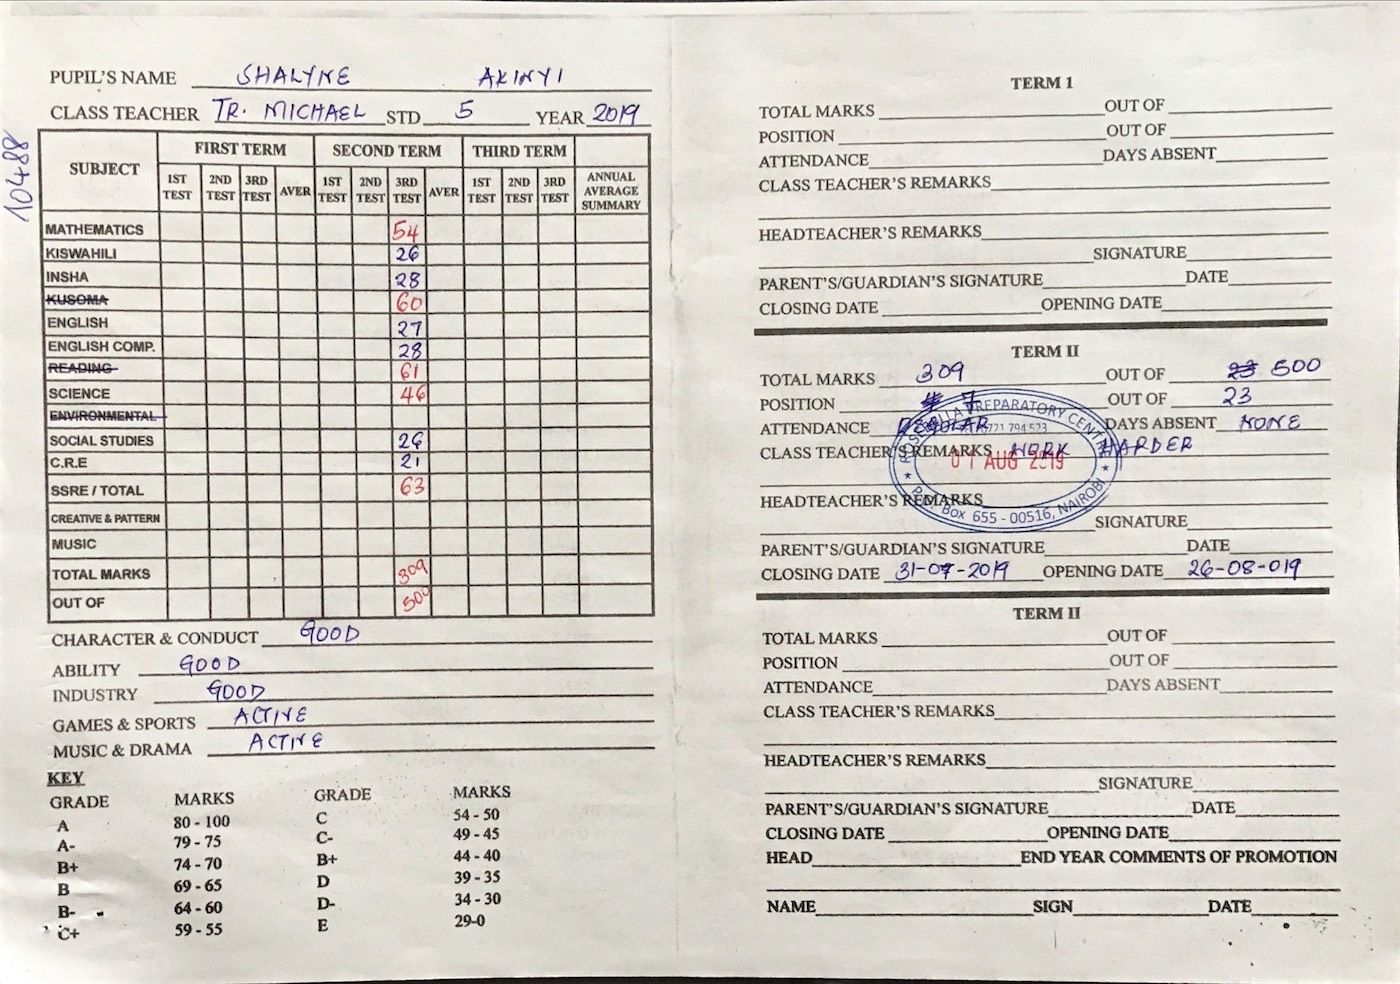 10488
PUPIL'S NAME SHALYNE AKINYI
CLASS TEACHER TR. MICHAEL STD 5 YEAR 2019
SUBJECT FIRST TERM SECOND TERM THIRD TERM ANNUAL AVERAGE SUMMARY
1ST TEST 2ND TEST 3RD TEST AVER 1ST TEST 2ND TEST 3RD TEST AVER 1ST TEST 2ND TEST 3RD TEST
MATHEMATICS 54
KISWAHILI 26
INSHA 28
KUSOMA 60
ENGLISH 27
ENGLISH COMP. 28
READING 61
SCIENCE 46
ENVIRONMENTAL
SOCIAL STUDIES 26
C.R.E 21
SSRE / TOTAL 63
CREATIVE & PATTERN
MUSIC
TOTAL MARKS 309
OUT OF 500
CHARACTER & CONDUCT GOOD
ABILITY GOOD
INDUSTRY GOOD
GAMES & SPORTS ACTIVE
MUSIC & DRAMA ACTIVE
KEY
GRADE MARKS GRADE MARKS
A 80 - 100 C 54 - 50
A- 79 - 75 C- 49 - 45
B+ 74 - 70 B+ 44 - 40
B 69 - 65 D 39 - 35
B- 64 - 60 D- 34 - 30
C+ 59 - 55 E 29-0
TERM 1
TOTAL MARKS OUT OF
POSITION OUT OF
ATTENDANCE DAYS ABSENT
CLASS TEACHER'S REMARKS
HEADTEACHER'S REMARKS
SIGNATURE
PARENT'S/GUARDIAN'S SIGNATURE DATE
CLOSING DATE OPENING DATE
TERM II
TOTAL MARKS 309 OUT OF 23 500
POSITION 7 OUT OF 23
ATTENDANCE REGULAR DAYS ABSENT NONE
CLASS TEACHER'S REMARKS WORK HARDER
PREPARATORY CENTRE
0721 794 523
01 AUG 2019
P.O. Box 655 - 00516, NAIROBI
HEADTEACHER'S REMARKS
SIGNATURE
PARENT'S/GUARDIAN'S SIGNATURE DATE
CLOSING DATE 31-07-2019 OPENING DATE 26-08-019
TERM II
TOTAL MARKS OUT OF
POSITION OUT OF
ATTENDANCE DAYS ABSENT
CLASS TEACHER'S REMARKS
HEADTEACHER'S REMARKS
SIGNATURE
PARENT'S/GUARDIAN'S SIGNATURE DATE
CLOSING DATE OPENING DATE
HEAD END YEAR COMMENTS OF PROMOTION
NAME SIGN DATE